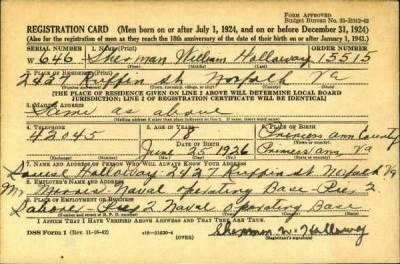 FORM APPROVED
Budget Bureau No. 33-R012-42
REGISTRATION CARD (Men born on or after July 1, 1924, and on or before December 31, 1924)
(Also for the registration of men as they reach the 18th anniversary of the date of their birth on or after January 1, 1943.)
SERIAL NUMBER 1. NAME (Print) ORDER NUMBER
W 646 Sherman William Halloway 15515
2. PLACE OF RESIDENCE (Print)
2427 Ruffin st Norfolk Va
[THE PLACE OF RESIDENCE GIVEN ON LINE 2 ABOVE WILL DETERMINE LOCAL BOARD
JURISDICTION; LINE 2 OF REGISTRATION CERTIFICATE WILL BE IDENTICAL]
3. MAILING ADDRESS
Same as above
4. TELEPHONE 5. AGE IN YEARS 6. PLACE OF BIRTH
42045 Princess ann County
DATE OF BIRTH
June 25 1926 Princess ann Va
7. NAME AND ADDRESS OF PERSON WHO WILL ALWAYS KNOW YOUR ADDRESS
Louise Halloway 2427 Ruffin st Norfolk Va
8. EMPLOYER'S NAME AND ADDRESS
Mr Naval operating Base Pier 2
9. PLACE OF EMPLOYMENT OR BUSINESS
Pier 2 Naval operating Base
I AFFIRM THAT I HAVE VERIFIED ABOVE ANSWERS AND THAT THEY ARE TRUE.
DSS Form 1 (Rev. 11-16-42) (OVER)
Sherman W. Halloway
(Registrant's signature)